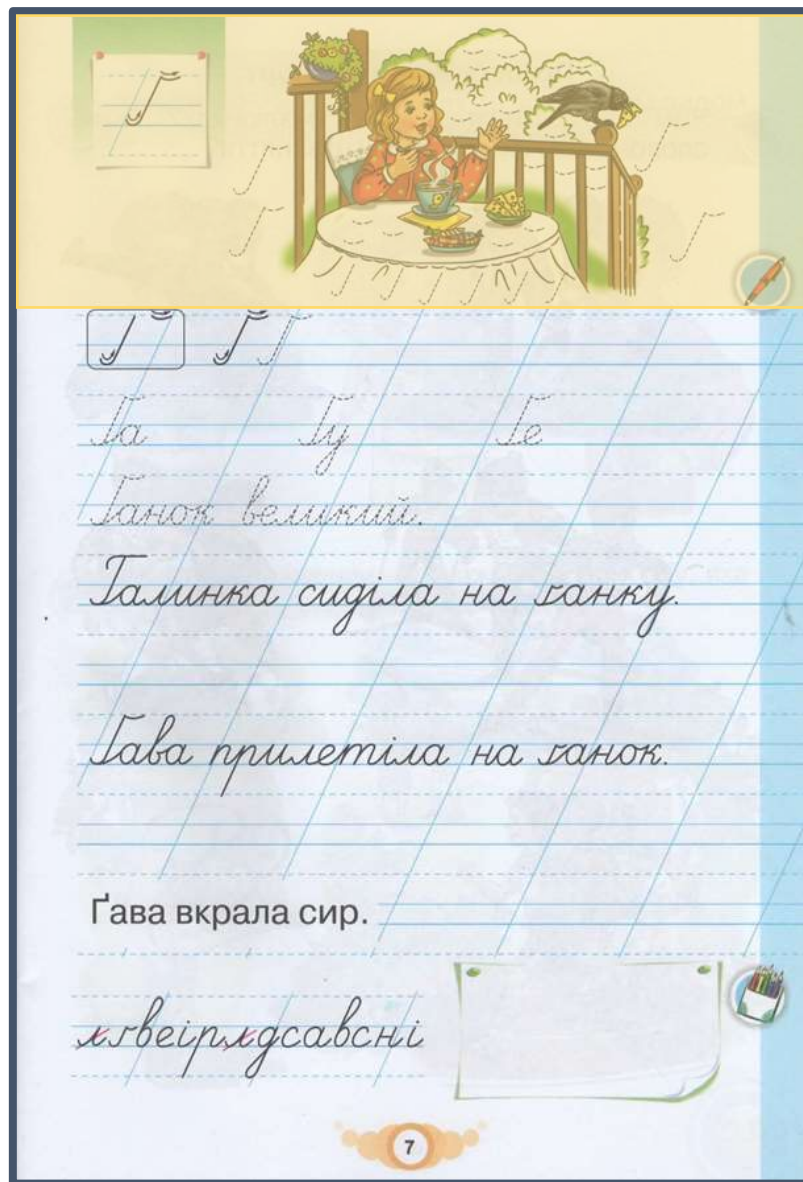 Ґ
Ґ Ґ
Ґа Ґу Ґе
Ґанок великий.
Ґалинка сиділа на ґанку.
Ґава прилетіла на ґанок.
Ґава вкрала сир.
лґвеірлдсавсні
7